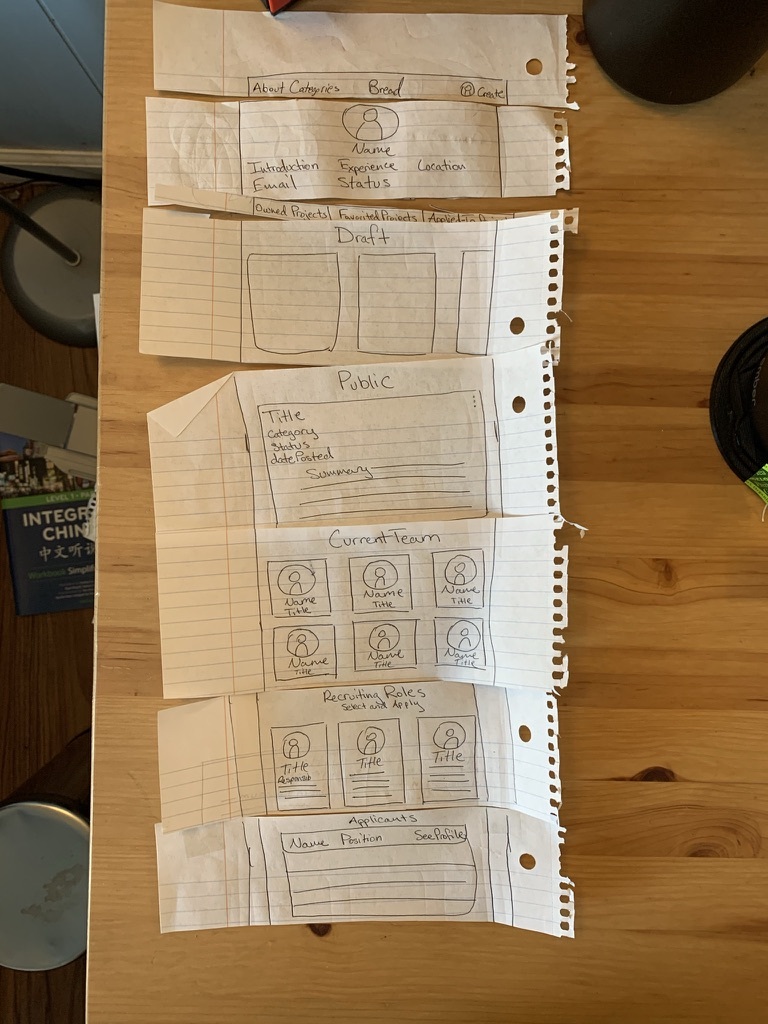 About Categories Bread Create
Name
Introduction Experience Location
Email Status
Owned Projects Favorited Projects
Draft
Public
Title
Category
Status
datePosted
Summary
Current Team
Name Name Name
Title Title Title
Name Name Name
Title Title Title
Recruiting Roles
Select and Apply
Title Title Title
Applicants
Name Position See Profile
LEVEL 1
INTEGR
CHIN
中文听
Workbook Simplifi